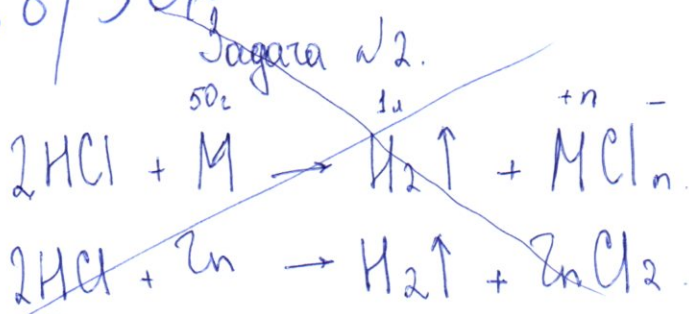 Задача №2.
50г 1л +n -
2HCl + M → H₂↑ + MClₙ
2HCl + Zn → H₂↑ + ZnCl₂.